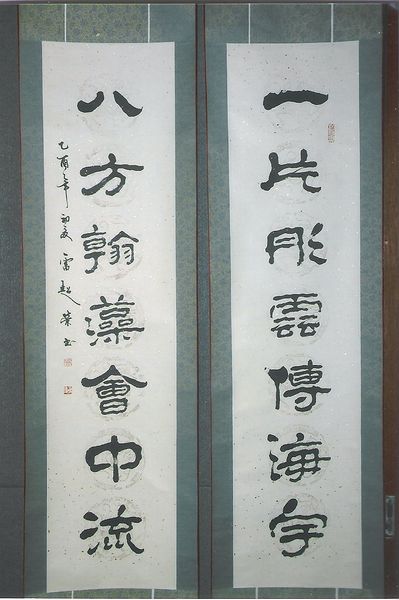 一片彤雲傳海宇
八方翰藻會中流
乙酉年初夏雷超榮書